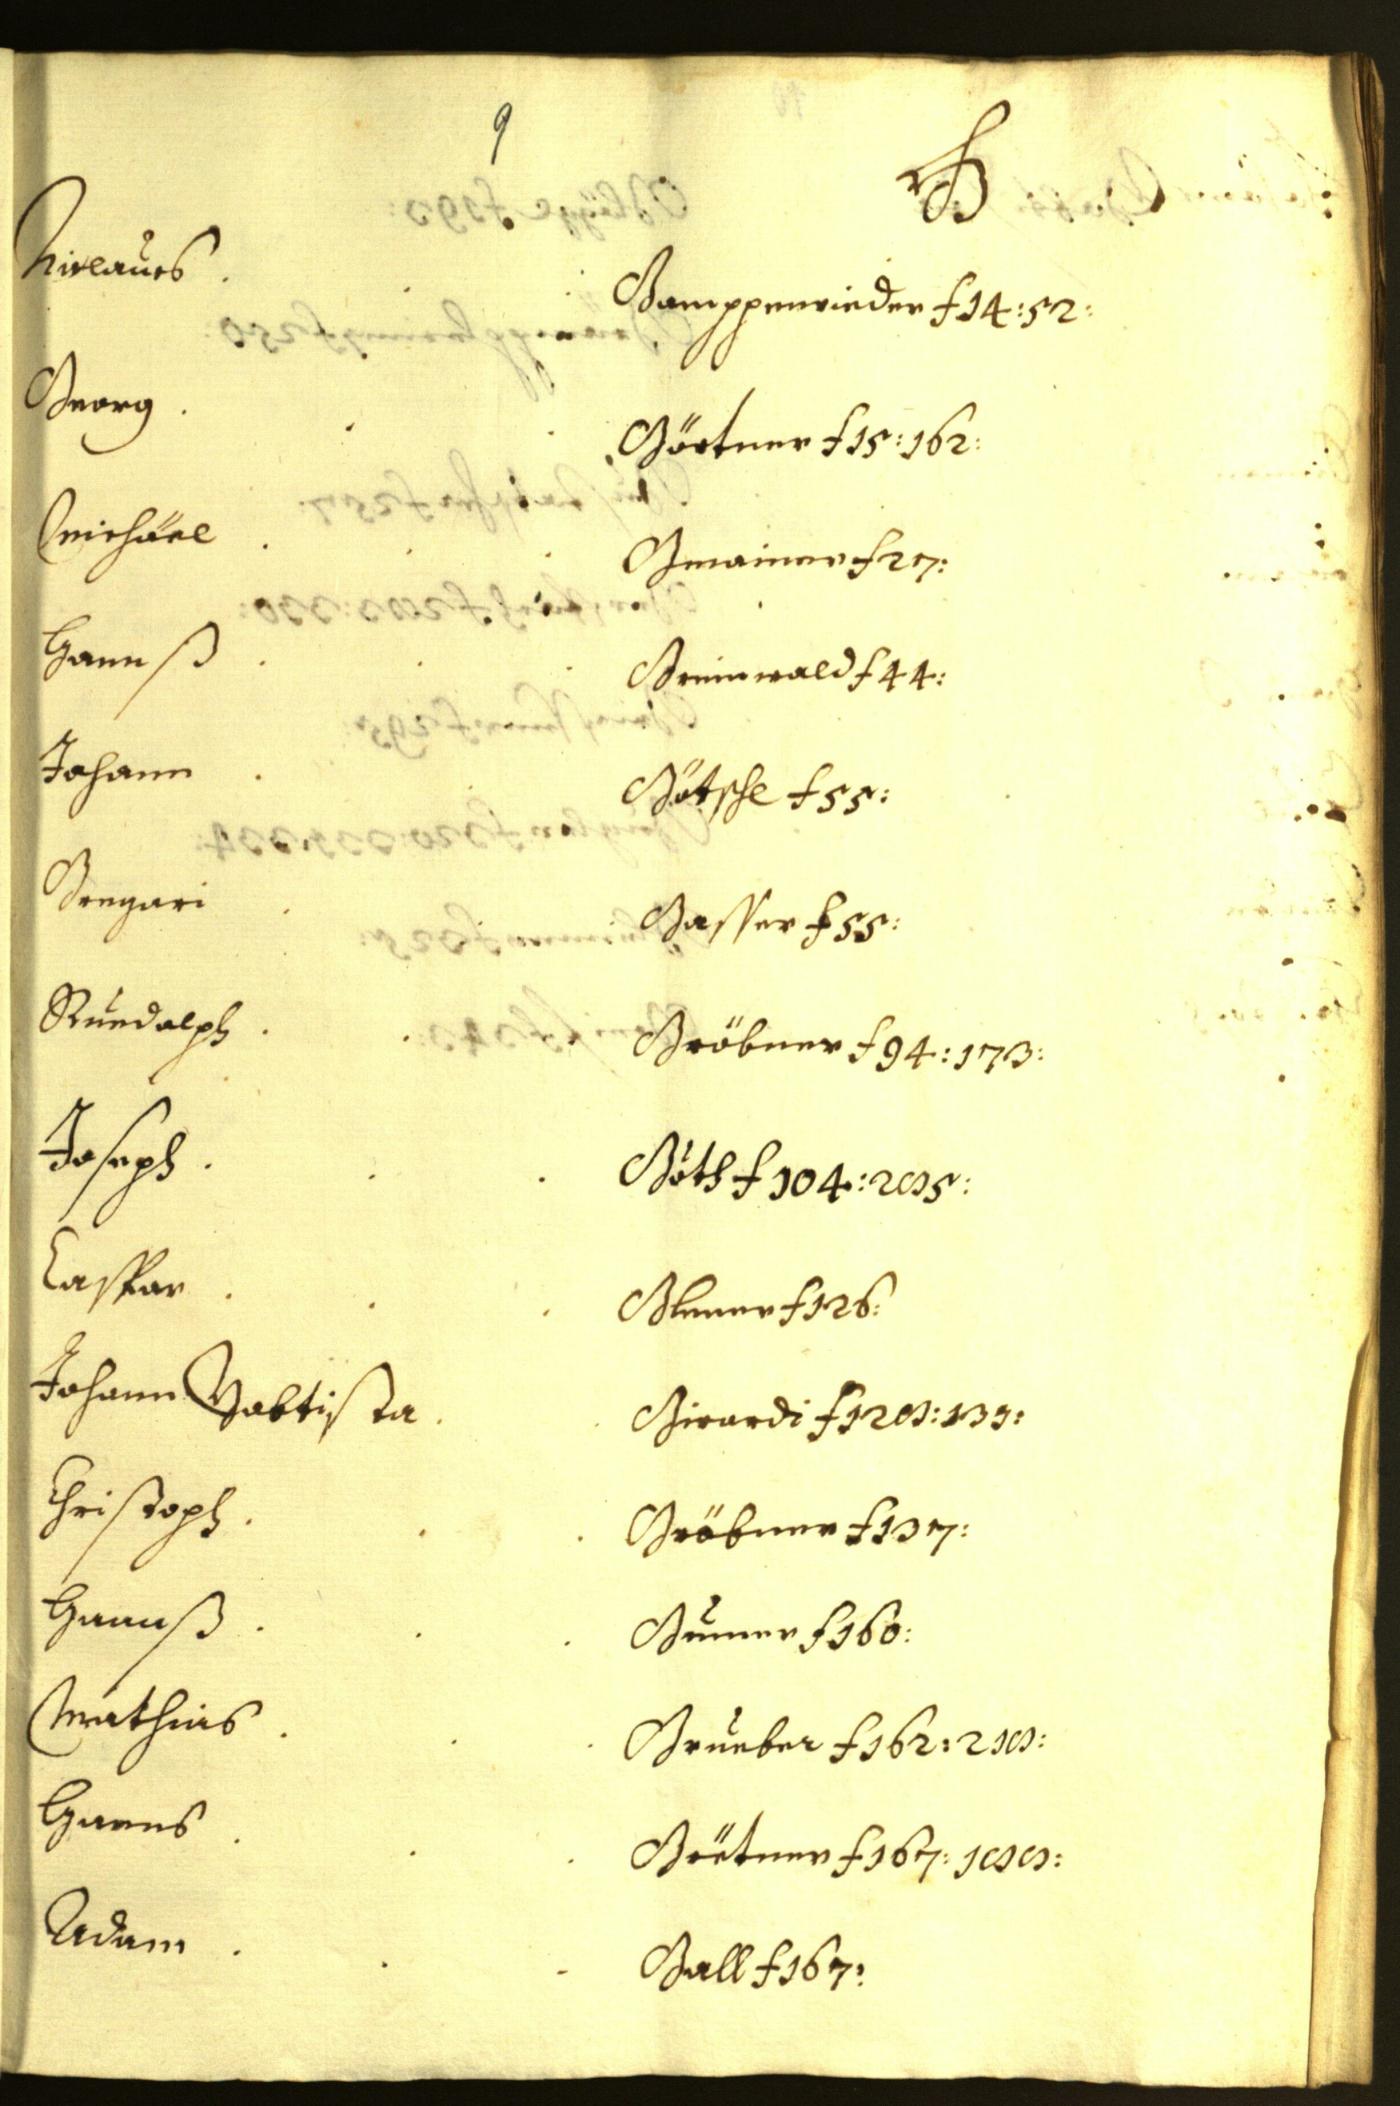 9
G
Niclaues . Gamppenrieder f 14 : 52 :
Georg . Görtner f 15 : 162 :
Michäel . Gmainer f 27 :
Hannß . Grienwald f 44 :
Johann . Götschl f 55 :
Gregori . Gasser f 55 :
Ruedolph . Gröbner f 94 : 173 :
Joseph . Göth f 104 : 285 :
Caspar . Glener f 126 :
Johann Babtista . Girardi f 128 : 133 :
Christoph . Gröbner f 137 :
Hannß . Gumer f 160 :
Mathias . Grueber f 162 : 218 :
Hanns . Grëtner f 167 : 188 :
Adam . Gall f 167 :